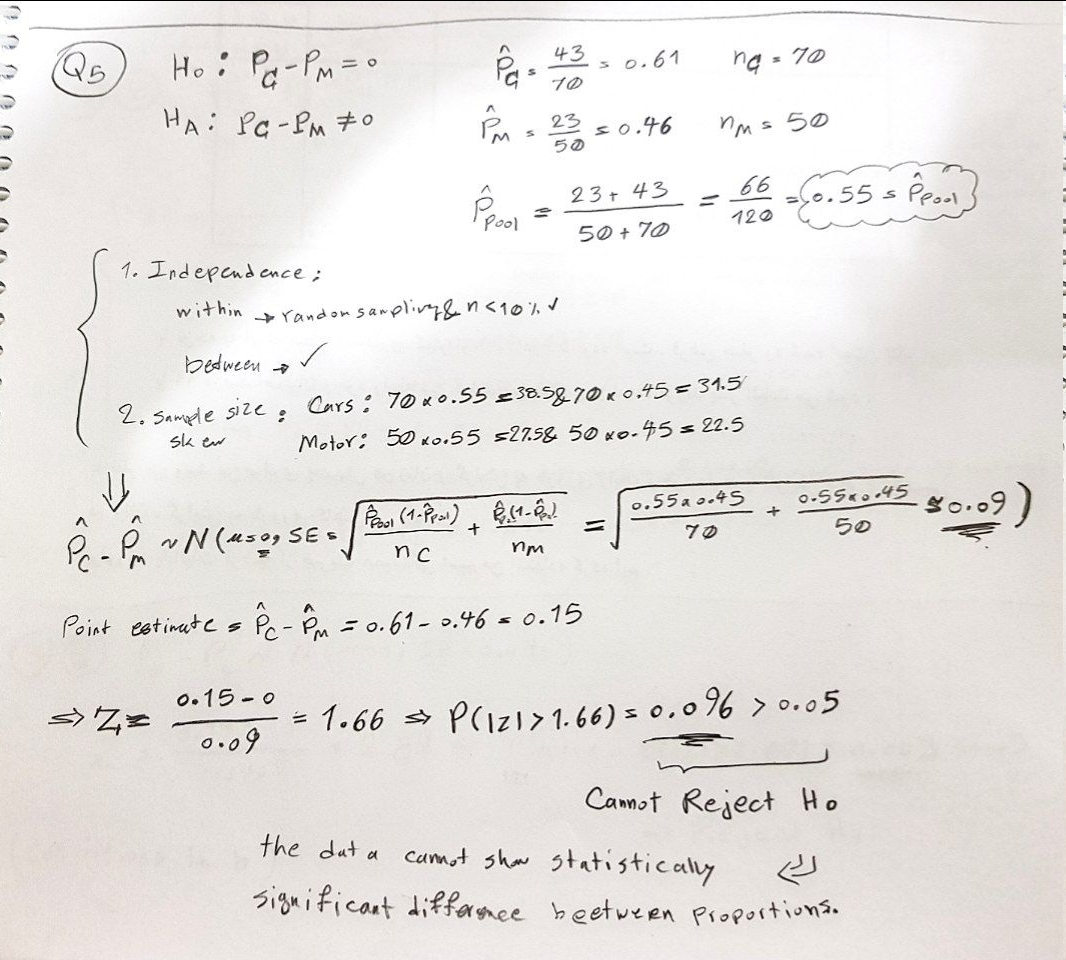 Q5 H₀ : P_C - P_M = 0 P̂_C = 43/70 = 0.61 n_C = 70
H_A : P_C - P_M ≠ 0 P̂_M = 23/50 = 0.46 n_M = 50
P̂_pool = (23 + 43)/(50 + 70) = 66/120 = 0.55 = P̂_pool
1. Independence :
within → random sampling & n < 10% ✓
between → ✓
2. Sample size : Cars : 70 x 0.55 = 38.5 & 70 x 0.45 = 31.5
skew Motor : 50 x 0.55 = 27.5 & 50 x 0.45 = 22.5
⇓
P̂_C - P̂_m ~ N ( μ = 0, SE = √( P̂_pool (1 - P̂_pool)/n_C + P̂_po. (1 - P̂_po.)/n_M ) = √( 0.55 x 0.45/70 + 0.55 x 0.45/50 ) ≈ 0.09 )
Point estimate = P̂_C - P̂_M = 0.61 - 0.46 = 0.15
⇒ Z = (0.15 - 0)/0.09 = 1.66 ⇒ P(|z| > 1.66) = 0.096 > 0.05
Cannot Reject H₀
the data cannot show statistically ⇐
significant difference beetween proportions.